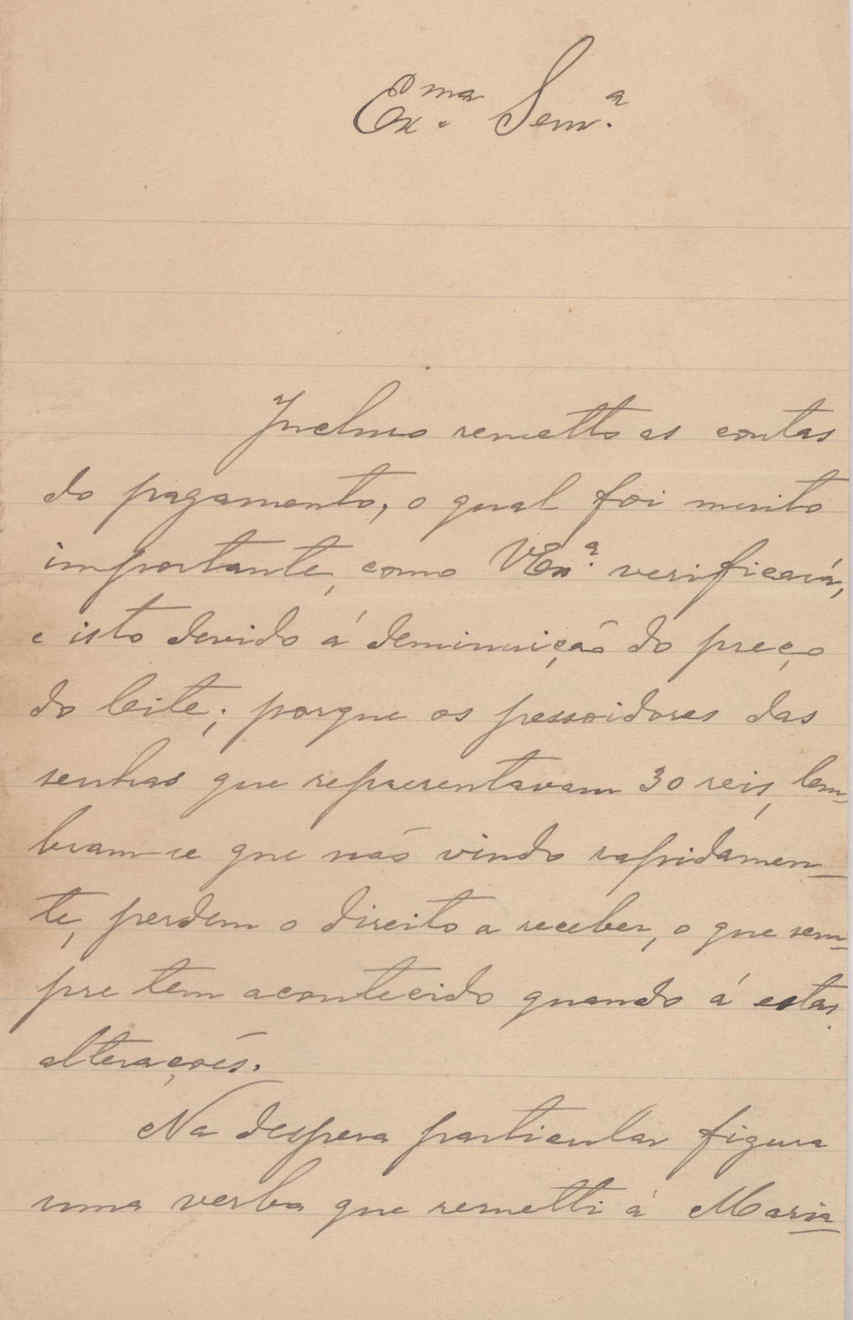 Exma. Senra.
Incluso remetto as contas
do pagamento, o qual foi muito
importante, como VExa. verificará,
e isto devido á deminuição do preço
do leite; porque os possoidores das
senhas que representavam 30 reis, lem-
bram-se que não vindo rapidamen-
te, perdem o direito a receber, o que sem-
pre tem acontecido quando á estas
alterações.
Na despesa particular figura
uma verba que remetti á Maria